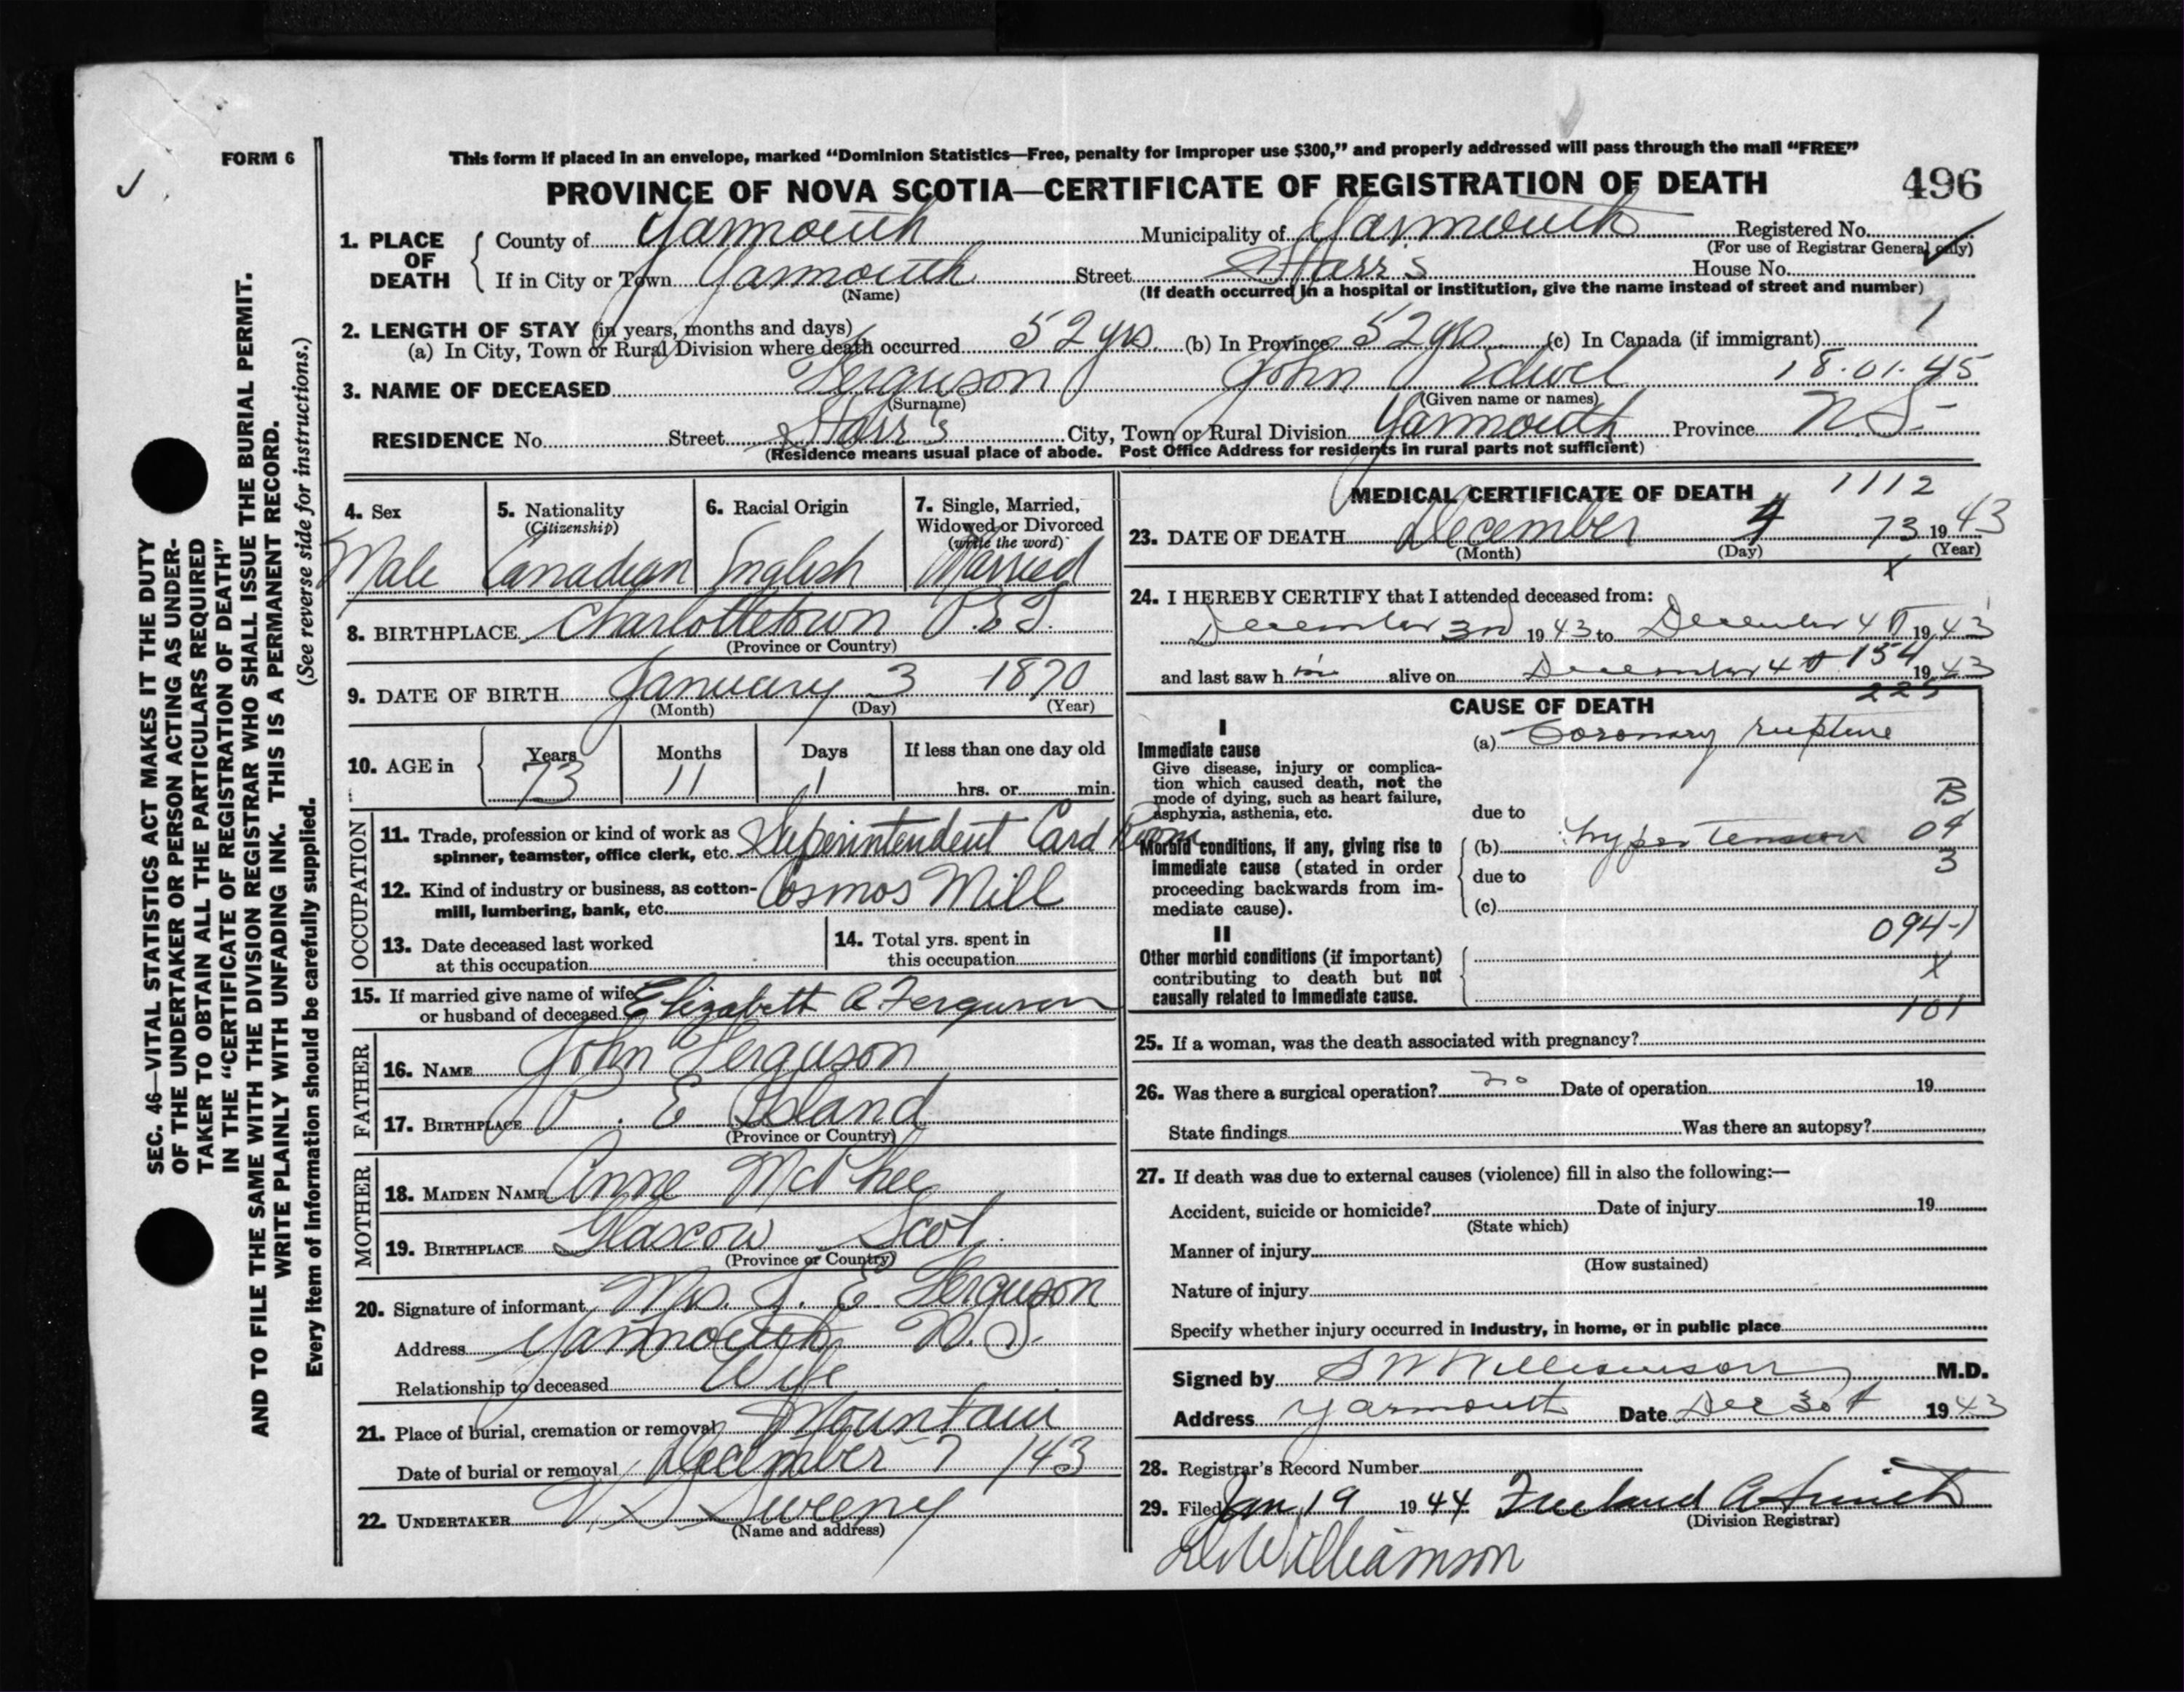 FORM 6
This form if placed in an envelope, marked "Dominion Statistics—Free, penalty for improper use $300," and properly addressed will pass through the mail "FREE"
PROVINCE OF NOVA SCOTIA—CERTIFICATE OF REGISTRATION OF DEATH
496
1. PLACE OF DEATH County of Yarmouth Municipality of Yarmouth Registered No.
(For use of Registrar General only)
If in City or Town Yarmouth Street Starr's House No.
(Name) (If death occurred in a hospital or institution, give the name instead of street and number)
2. LENGTH OF STAY (in years, months and days)
(a) In City, Town or Rural Division where death occurred 52 yrs. (b) In Province 52 yrs (c) In Canada (if immigrant) 1
3. NAME OF DECEASED Ferguson John Edwel 18.01.45
(Surname) (Given name or names)
RESIDENCE No. Street Starr's City, Town or Rural Division Yarmouth Province N.S.
(Residence means usual place of abode. Post Office Address for residents in rural parts not sufficient)
4. Sex 5. Nationality (Citizenship) 6. Racial Origin 7. Single, Married, Widowed or Divorced (write the word)
Male Canadian English Married
8. BIRTHPLACE Charlottetown P.E.I.
(Province or Country)
9. DATE OF BIRTH January 3 1870
(Month) (Day) (Year)
10. AGE in Years Months Days If less than one day old
73 11 1 hrs. or min.
OCCUPATION
11. Trade, profession or kind of work as spinner, teamster, office clerk, etc. Superintendent Card Room
12. Kind of industry or business, as cotton-mill, lumbering, bank, etc. Cosmos Mill
13. Date deceased last worked at this occupation
14. Total yrs. spent in this occupation
15. If married give name of wife or husband of deceased Elizabeth A Ferguson
FATHER
16. NAME John Ferguson
17. BIRTHPLACE P. E Island
(Province or Country)
MOTHER
18. MAIDEN NAME Anne McPhee
19. BIRTHPLACE Glascow Scot.
(Province or Country)
20. Signature of informant Mrs. J. E. Ferguson
Address Yarmouth N.S.
Relationship to deceased Wife
21. Place of burial, cremation or removal Mountain
Date of burial or removal December 7 /43
22. UNDERTAKER V. S. Sweeny
(Name and address)
MEDICAL CERTIFICATE OF DEATH 1112
23. DATE OF DEATH December 4 73 1943
(Month) (Day) (Year)
x
24. I HEREBY CERTIFY that I attended deceased from:
December 3rd 1943 to December 4th 1943
and last saw him alive on December 4th 154 1943
225
CAUSE OF DEATH
I
Immediate cause
Give disease, injury or complication which caused death, not the mode of dying, such as heart failure, asphyxia, asthenia, etc.
(a) Coronary rupture
due to B
Morbid conditions, if any, giving rise to immediate cause (stated in order proceeding backwards from immediate cause).
(b) hypertension 04
due to 3
(c)
094-1
II
Other morbid conditions (if important) contributing to death but not causally related to immediate cause.
X
101
25. If a woman, was the death associated with pregnancy?
26. Was there a surgical operation? no Date of operation 19
State findings Was there an autopsy?
27. If death was due to external causes (violence) fill in also the following:—
Accident, suicide or homicide? Date of injury 19
(State which)
Manner of injury
(How sustained)
Nature of injury
Specify whether injury occurred in industry, in home, or in public place
Signed by S W Williamson M.D.
Address Yarmouth Date Dec 30th 1943
28. Registrar's Record Number
29. Filed Jan 19 1944 Freeland A Smith
(Division Registrar)
Williamson
SEC. 46—VITAL STATISTICS ACT MAKES IT THE DUTY
OF THE UNDERTAKER OR PERSON ACTING AS UNDER-
TAKER TO OBTAIN ALL THE PARTICULARS REQUIRED
IN THE "CERTIFICATE OF REGISTRATION OF DEATH"
AND TO FILE THE SAME WITH THE DIVISION REGISTRAR WHO SHALL ISSUE THE BURIAL PERMIT.
WRITE PLAINLY WITH UNFADING INK. THIS IS A PERMANENT RECORD.
Every item of information should be carefully supplied. (See reverse side for instructions.)